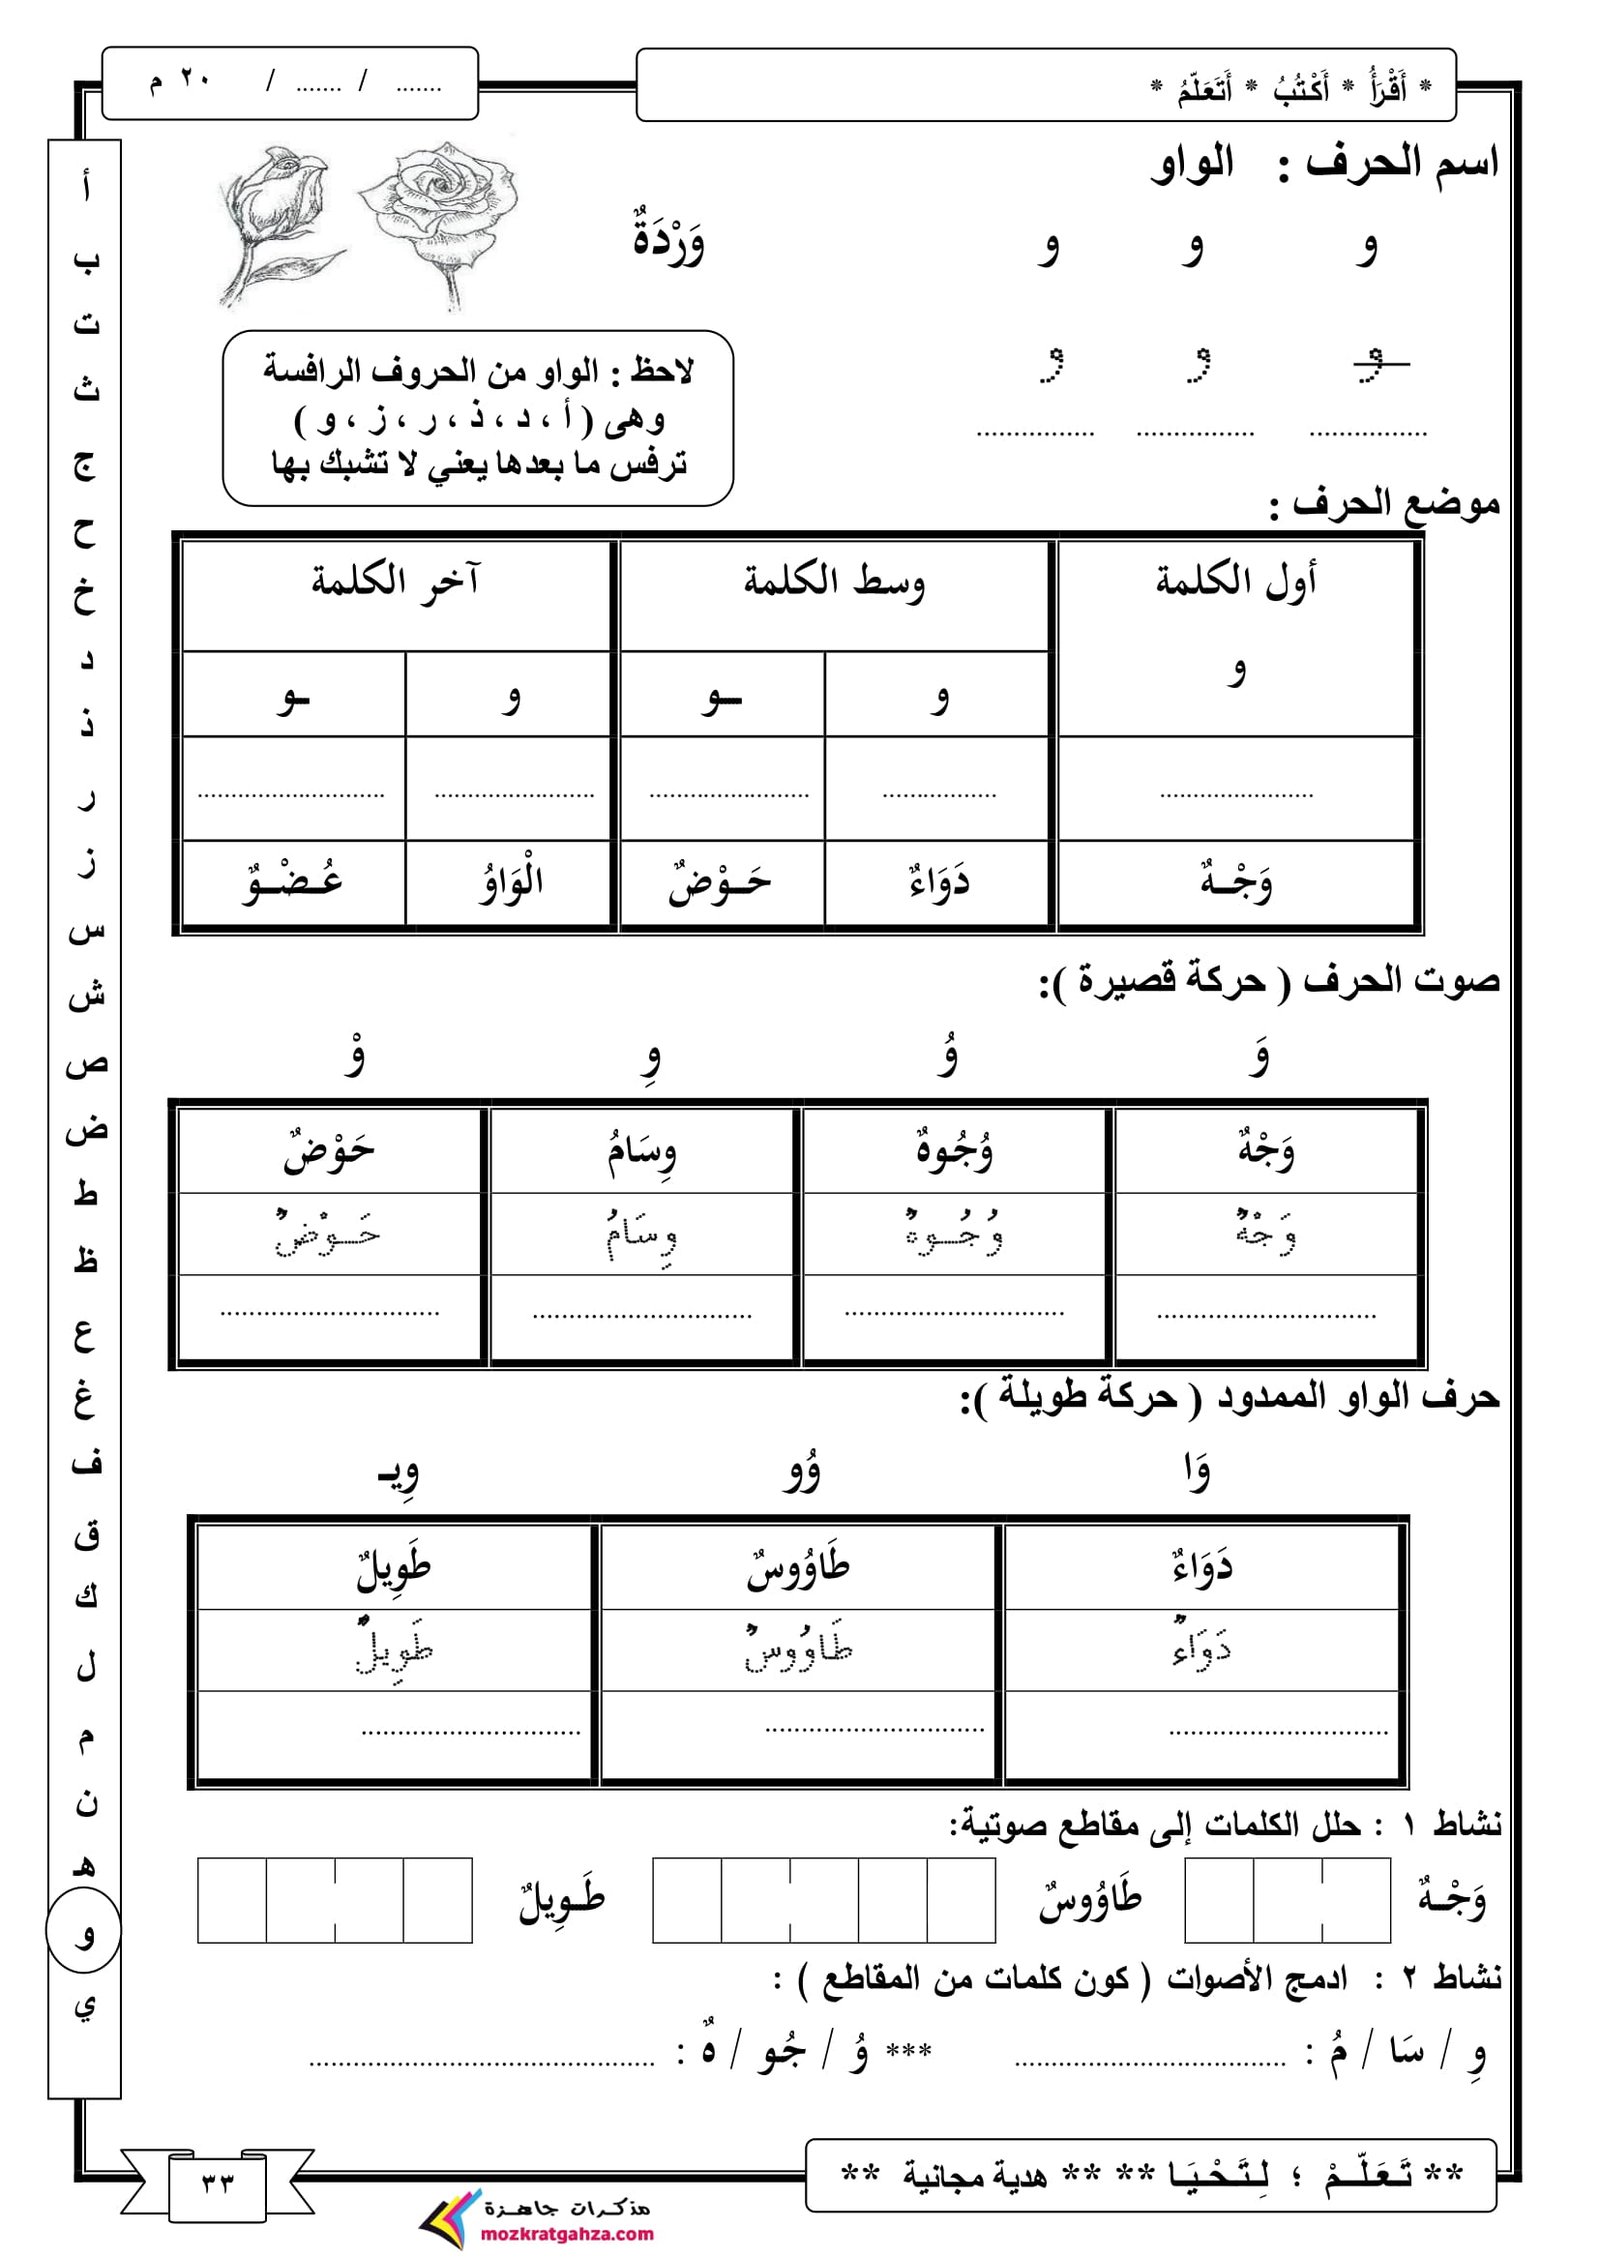 * أَقْرَأُ * أَكْتُبُ * أَتَعَلّمُ *
....... / ....... / ٢٠ م
اسم الحرف : الواو
و و و
وَرْدَةٌ
و و و
................ ................ ................
لاحظ : الواو من الحروف الرافسة
وهى ( أ ، د ، ذ ، ر ، ز ، و )
ترفس ما بعدها يعني لا تشبك بها
موضع الحرف :
أول الكلمة وسط الكلمة آخر الكلمة
و و ـو و ـو
....................... ................. ........................ ........................ ............................
وَجْـهٌ دَوَاءٌ حَـوْضٌ الْوَاوُ عُـضْـوٌ
صوت الحرف ( حركة قصيرة ):
وَ وُ وِ وْ
وَجْهٌ وُجُوهٌ وِسَامُ حَوْضٌ
وَجْهٌ وُجُـوهٌ وِسَامُ حَـوْضٌ
.............................. .............................. .............................. ..............................
حرف الواو الممدود ( حركة طويلة ):
وَا وُو وِيـ
دَوَاءٌ طَاوُوسٌ طَوِيلٌ
دَوَاءٌ طَاوُوسٌ طَوِيلٌ
.............................. .............................. ..............................
نشاط ١ : حلل الكلمات إلى مقاطع صوتية:
وَجْـهٌ طَاوُوسٌ طَـوِيلٌ
نشاط ٢ : ادمج الأصوات ( كون كلمات من المقاطع ) :
وِ / سَا / مُ : ..................................... *** وُ / جُو / هٌ : ...............................................
** تَـعَـلّـمْ ؛ لِـتَـحْـيَـا ** ** هدية مجانية **
٣٣
مذكرات جاهزة
mozkratgahza.com
أ
ب
ت
ث
ج
ح
خ
د
ذ
ر
ز
س
ش
ص
ض
ط
ظ
ع
غ
ف
ق
ك
ل
م
ن
هـ
و
ي